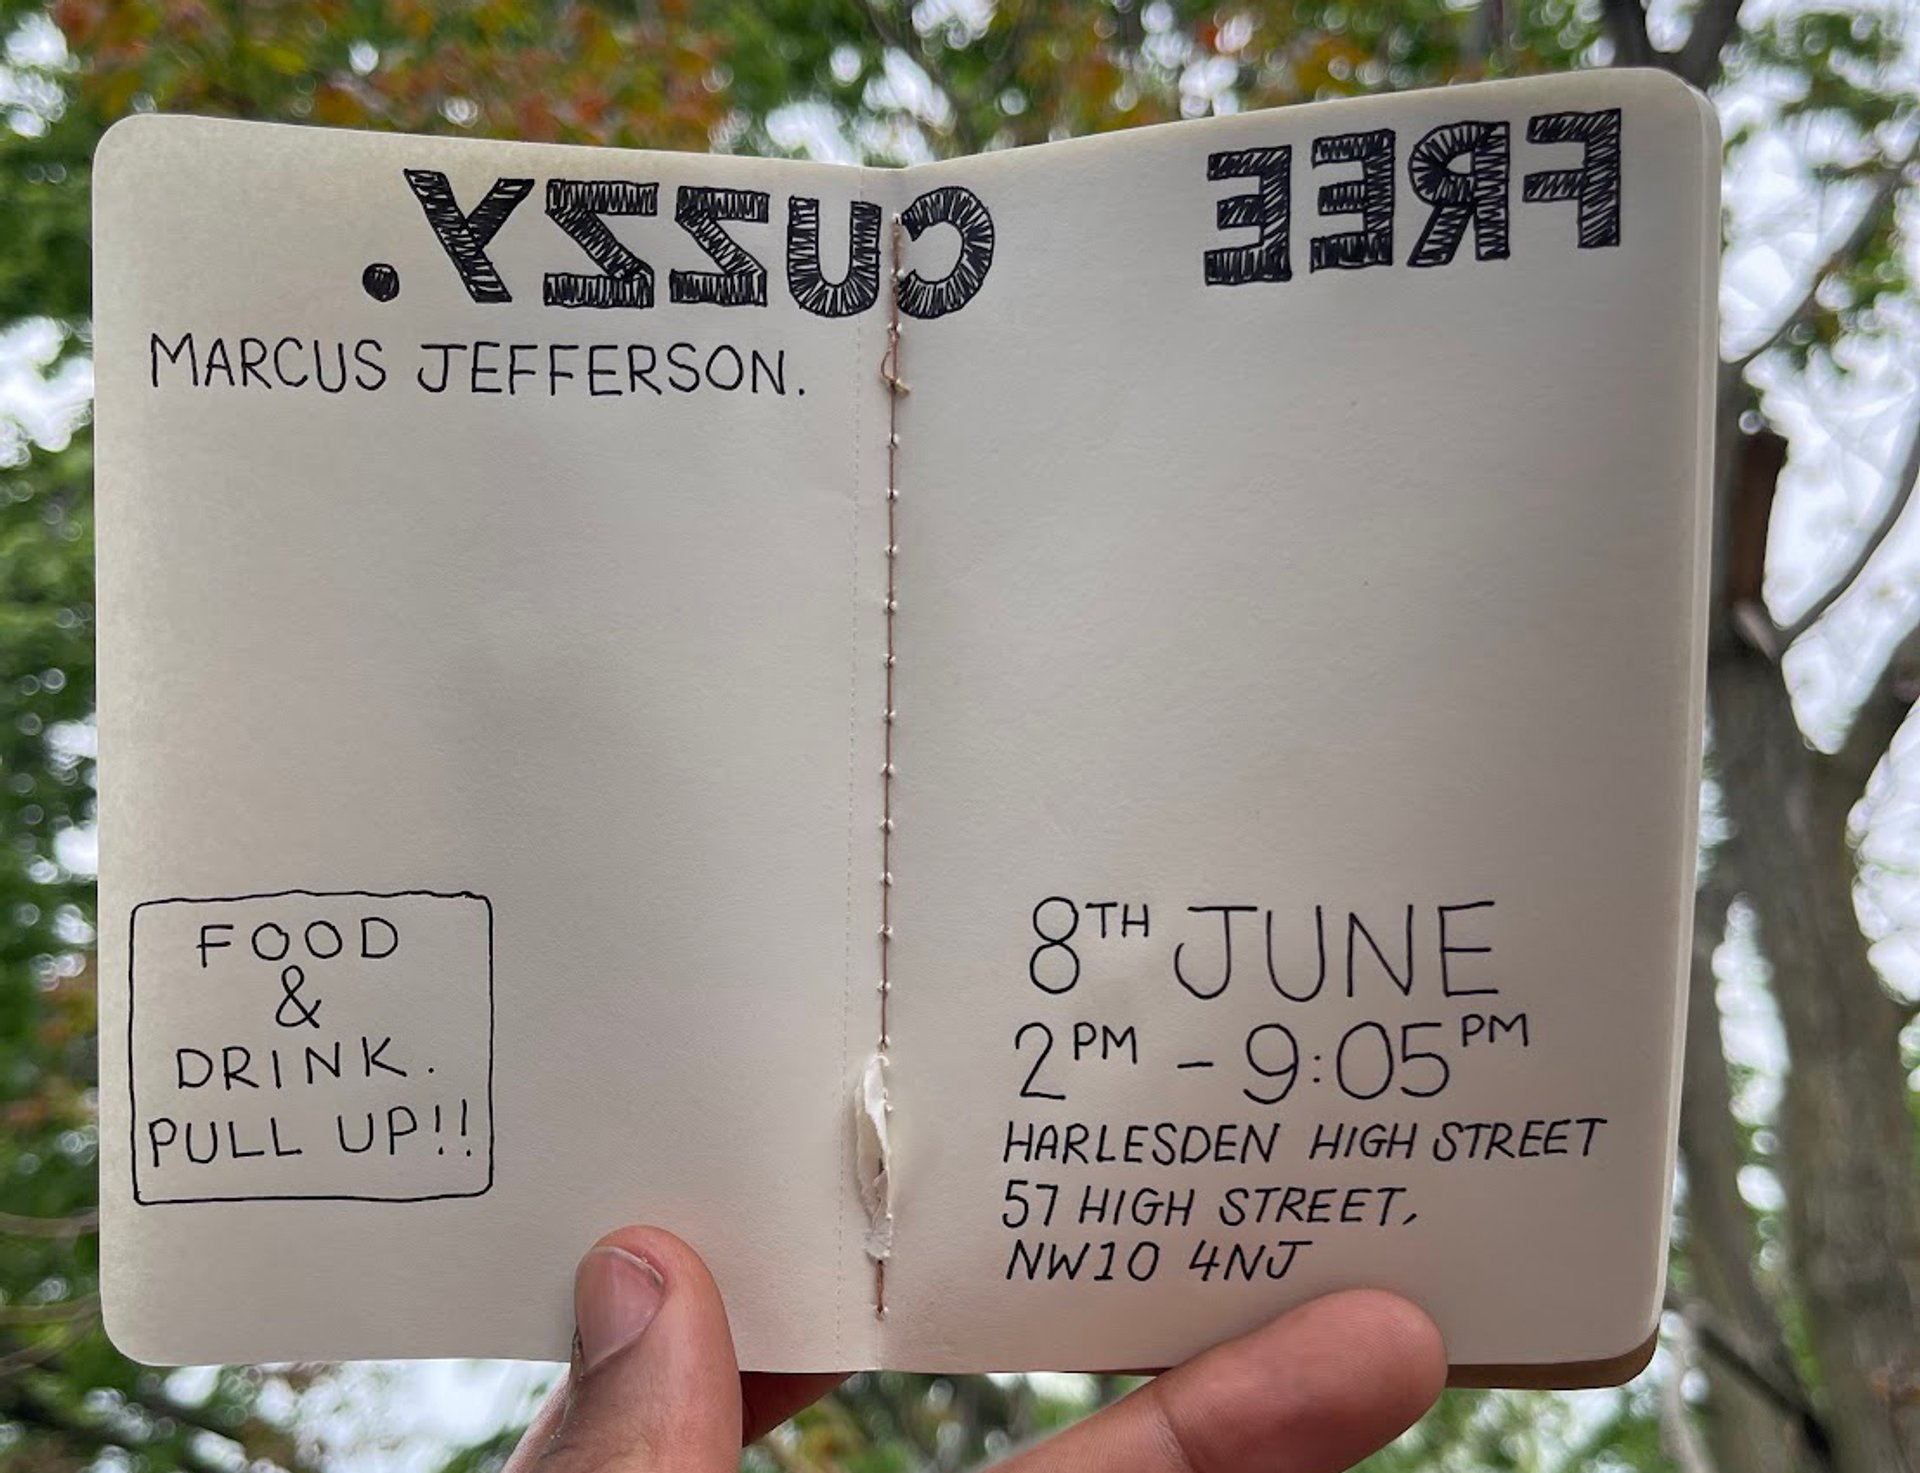 FREE CUZZY.
MARCUS JEFFERSON.
FOOD
&
DRINK.
PULL UP!!
8TH JUNE
2PM - 9:05PM
HARLESDEN HIGH STREET
57 HIGH STREET,
NW10 4NJ